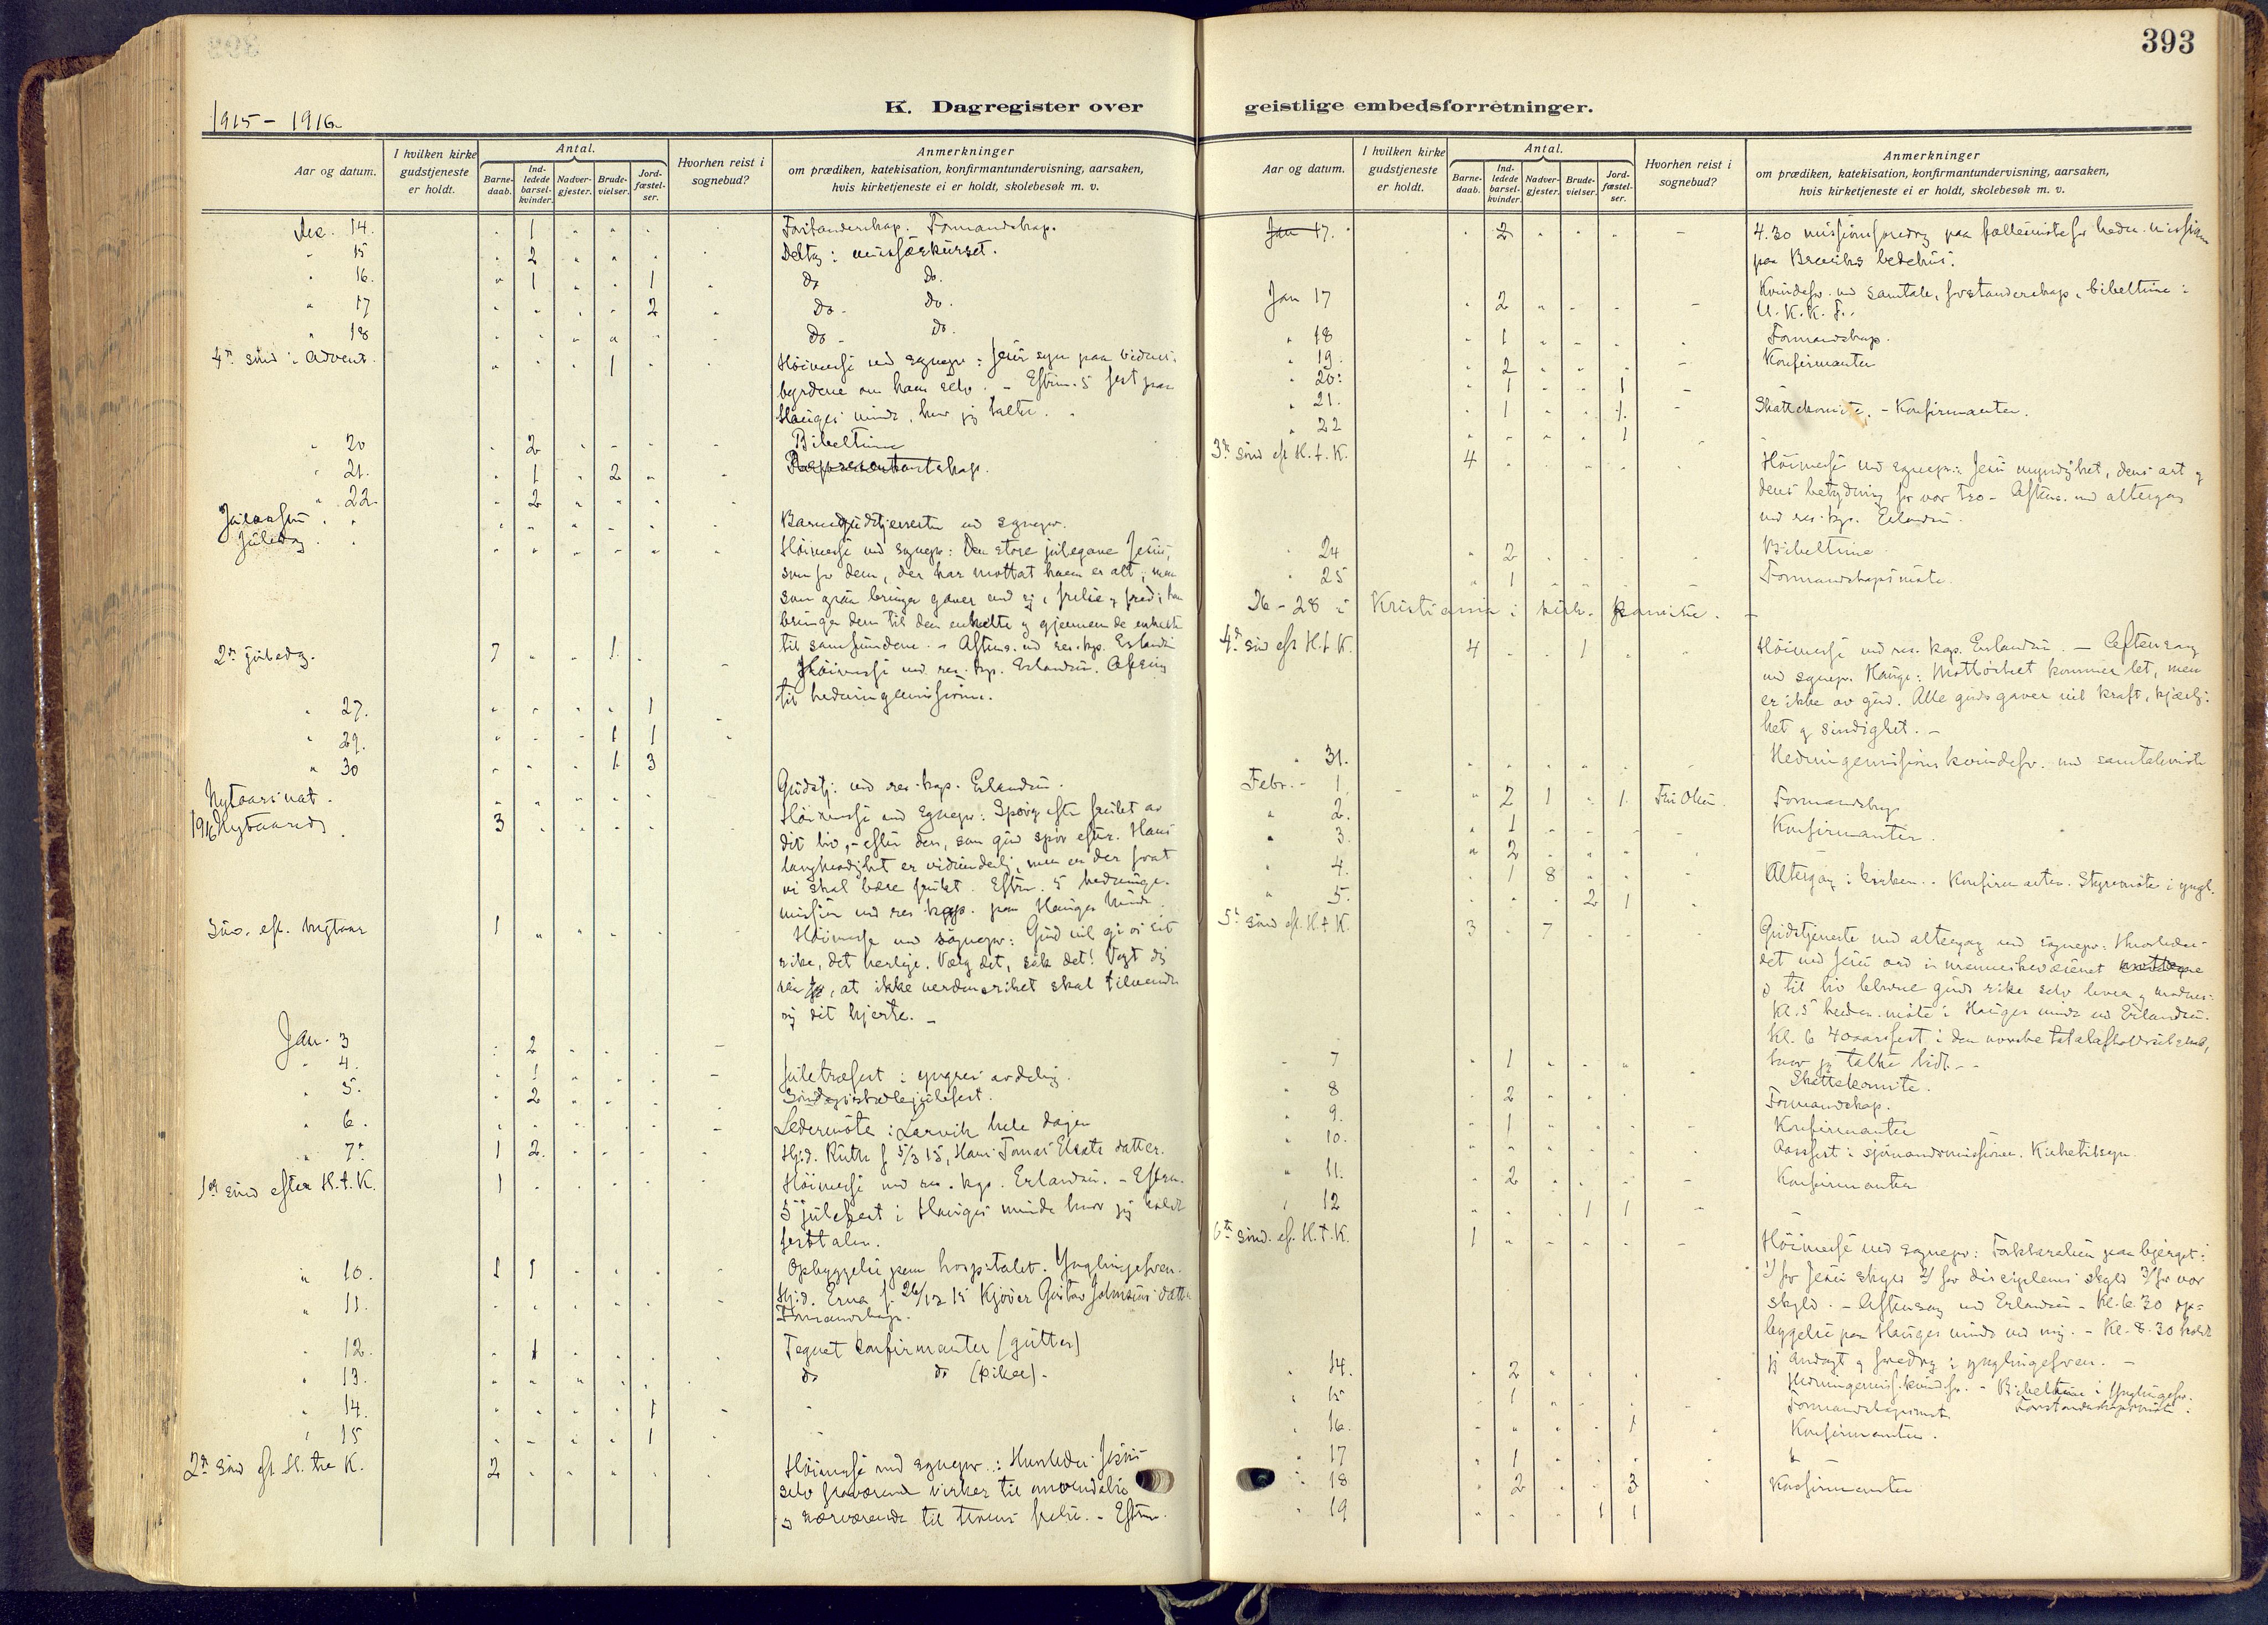 393
1915 - 1916
K. Dagregister over
geistlige embedsforretninger.
Aar og datum.
I hvilken kirke gudstjeneste er holdt.
Antal.
Barne-daab.
Ind-ledede barsel-kvinder.
Nadver-gjester.
Brude-vielser.
Jord-fæstel-ser.
Hvorhen reist i sognebud?
Anmerkninger
om prædiken, katekisation, konfirmantundervisning, aarsaken,
hvis kirketjeneste ei er holdt, skolebesøk m. v.
Dec. 14. " 1 " " " Forstanderskap. Formandskap.
" 15 " 2 " " Deltog i
" 16. " 1 " " 1 do do.
" 17 " " " " 2 do. do.
" 18 " " " " do. do.
4de sønd i Advent " " " 1 Høimesse ved sognepr: Jesu syn paa vidnes-
byrdene om ham selv. - Eftm. 5 fest paa
Hauges minde, hvor jeg talte.
" 20 " 2 " " Bibeltime
" 21. " 1 " 2 " Representantskap.
" 22. " 2 " "
Juleaften Barnegudstjeneste ved sognepr.
Juledag Høimesse ved sognepr: Den store julegave Jesus,
som for dem, der har mottat ham er alt, men
bringer dem til den enkelte og gjennem de enkelte
til samfundene. - Aftens. ved res. kap. Erlandsen
2den juledag. 7 " " 1 Høimesse ved res. kap. Erlandsen.
til hedningemissionen.
" 27. " " " " 1
" 29. " " " 1 1
" 30 " " " 1 3
Nytaarsnat. Gudstj: ved res. kap. Erlandsen.
1916 Nytaarsdag 3 Høimesse ved sognepr: Spørg efter frukt av
dit liv, - efter den, som gud spør efter. Hans
langmodighet er vidunderlig, men en der forat
vi skal bære frukt. Eftm. 5 hedninge-
mission ved res. kap. paa Hauges Minde.
Søn. eft. Nytaar 1 Høimesse ved sognepr: Gud vil gi os sit
rike, det herlige. Vælg det, søk det! Vogt dig
, at ikke verdensriket skal tilvende
sig dit hjerte. -
Jan. 3 " 2
" 4. " 1 Juletræfest i yngres avdeling.
" 5. " 2 Søndagsskolejulefest.
" 6. Ledermøte i Larvik hele dagen
" 7. 1 2. Hjd. Ruth f 5/3 15, datter.
1ste sønd efter H. t. K. 1 Høimesse ved res. kap. Erlandsen. - Eftm.
5 julefest i Hauges minde hvor jeg holdt
festtalen.
" 10. 1 1 Opbyggelse paa hospitalet. Ynglingefören.
" 11. Hjd. Erna f. 26/12 15 Kjøver Gustav Johnsens datter
Formandskap.
" 12. " 1 Tegnet konfirmanter (gutter)
" 13. do do (piker).
" 14. 1
" 15 1
2den sønd eft. H. tre K. 2 Høimesse ved sognepr.: Hvorledes Jesus
selv fraværende virker til omvendelse
og nærværende til troens frelse. - Eftm.
Jan 17. " 2 4.30 missionsforedrag paa fællesmøte for hedn. mission
paa Breviks bedehus.
Jan 17 " 2 Kvindefor. med samtale, forstanderskap, bibeltime i
U. K. K. F..
" 18 " 1 Formandskap.
" 19. " 2 Konfirmanter
" 20: " 1 " " 1
" 21. " 1 " " 1. Skattekomite. - Konfirmanter.
" 22 " " " " 1
3die sønd eft H. t. K. 4 Høimesse ved sognepr.: Jesu myndighet, dens art og
dens betydning for vor tro - Aftens. med altergang
ved res. kap. Erlandsen.
" 24 " 2 Bibeltime
" 25 " 1 Formandskapsmøte.
26 - 28 i Kristiania i kirk. komite. -
4de søn eft H. t. K. 4 " " 1 Høimesse ved res. kap. Erlandsen. - Aftensang
ved sognepr. Hauge: Motløshet kommer let, men
er ikke av gud. Alle guds gaver vil kraft, kjærlig-
het og sindighet. -
" 31. Hedningemissions kvindefor. med samtalemøte
Febr. - 1. " 2 1 " 1. Fru Olsen Formandskap
" 2. " 1 Konfirmanter.
" 3. " 2
" 4. " 1 8 Altergang i kirken. . Konfirmanter. Styremøte i yngl.
" 5. " " " 2 1
5te sønd eft. H t K. 3 " 7 Gudstjeneste med altergang ved sognepr: Hvorledes
det med Jesu ord i menneskevæsenet
og til liv blevne guds rike selv lever og modnes.
Kl. 5 heden. møte i Hauges minde ved Erlandsen.
Kl. 6 40aarsfest i den norske totalafholdsselskab,
hvor jeg talte
" 7 " 1 Skattekomite.
" 8 " 2 Formandskap.
" 9. " 1 Konfirmanter
" 10. Aarsfest i sjømandsmissionen. Kirketilsyn.
" 11. " 2 Konfirmanter
" 12 " " " 1 1
6te sønd. eft. H. t. K. 1 Høimesse ved sognepr: Forklarelsen paa bjerget:
1) for Jesu skyld 2) for disciplenes skyld 3) for vor
skyld. - Aftensang ved Erlandsen - Kl. 6.30 op-
byggelse paa Hauges minde ved mig. - Kl. 8.30 holdt
jeg andagt og foredrag i ynglingeforen. -
" 14. " 2 Hedningemis. kvindefor. - Bibeltime i Ynglingefor.
" 15 " 1 Formandskapsmøte Forstanderskapsmøte.
" 16. " " " " 1 Konfirmanter.
" 17 " 1
" 18 " 2 " " 3 Konfirmanter
" 19 " " " 1 1